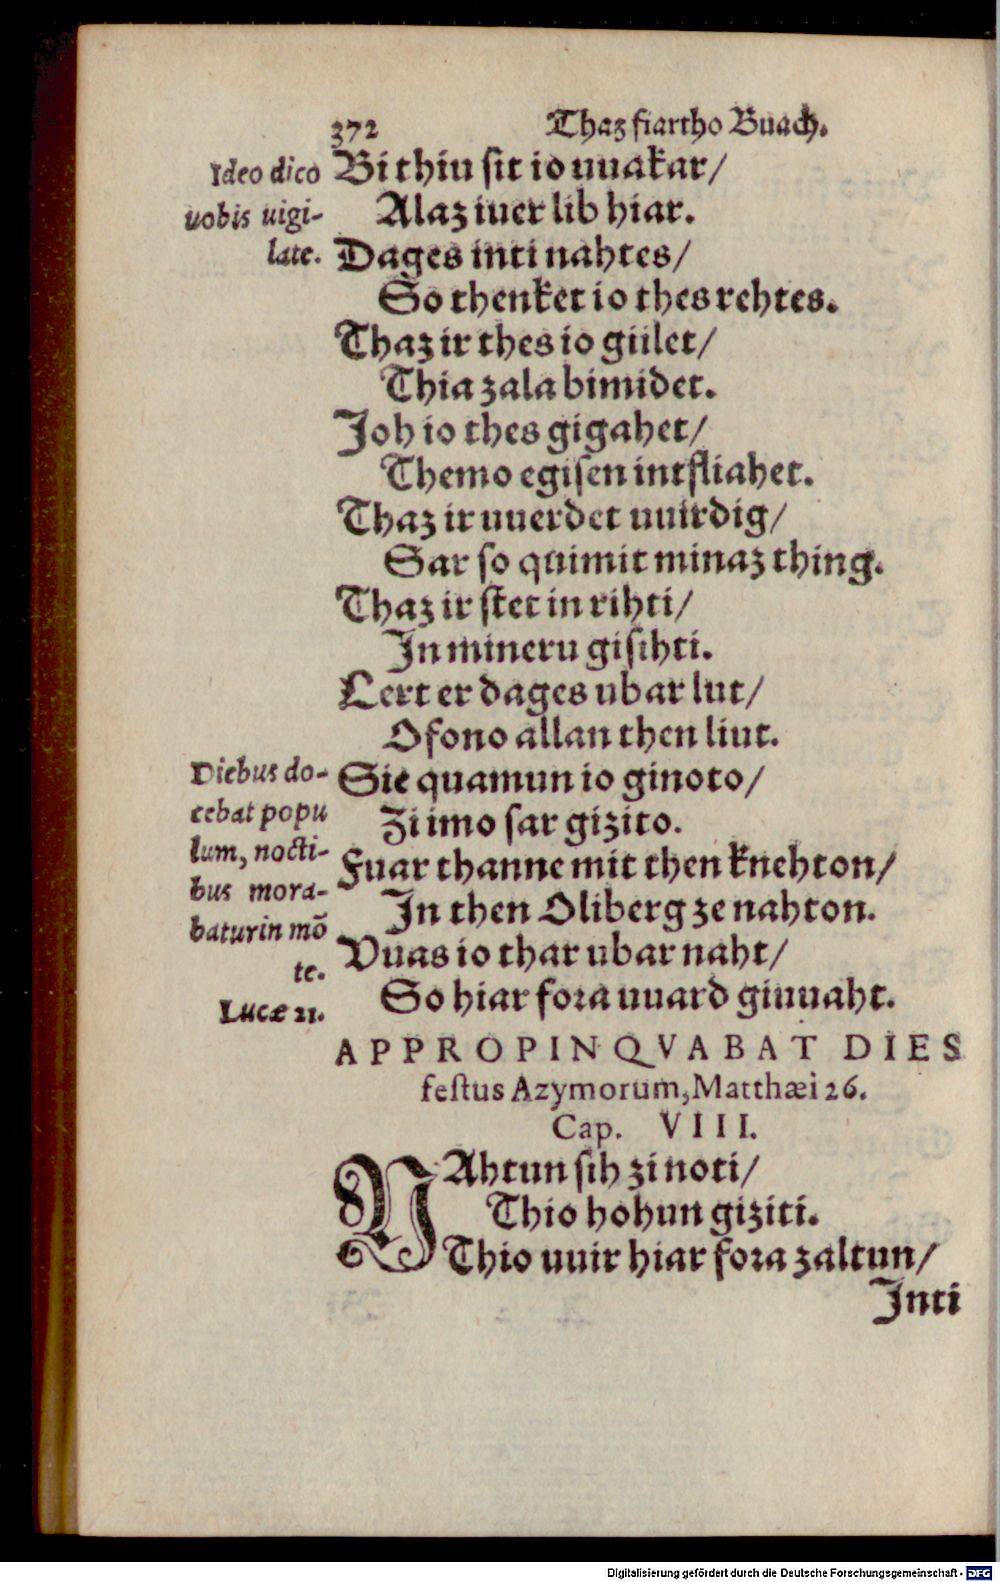 372 Thaz fiartho Buach.
Ideo dico
uobis uigi-
late.
Bi thiu sit io uuakar/
Alaz iuer lib hiar.
Dages inti nahtes/
So thenket io thes rehtes.
Thaz ir thes io giilet/
Thia zala bimidet.
Joh io thes gigahet/
Themo egisen intfliahet.
Thaz ir uuerdet uuirdig/
Sar so quimit minaz thing.
Thaz ir stet in rihti/
In mineru gisihti.
Lert er dages ubar lut/
Ofono allan then liut.
Diebus do-
cebat popu
lum, nocti-
bus mora-
batur in mõ
te.
Lucæ 21.
Sie quamun io ginoto/
Zi imo sar gizito.
Fuar thanne mit then knehton/
In then Oliberg ze nahton.
Vuas io thar ubar naht/
So hiar fora uuard giuuaht.
APPROPINQVABAT DIES
festus Azymorum, Matthæi 26.
Cap. VIII.
NAhtun sih zi noti/
Thio hohun giziti.
Thio uuir hiar fora zaltun/
Inti
Digitalisierung gefördert durch die Deutsche Forschungsgemeinschaft - DFG